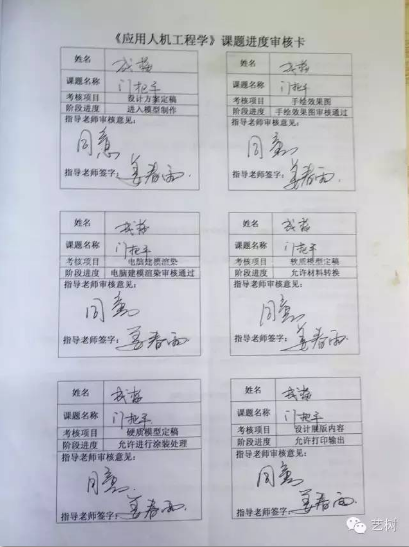 《应用人机工程学》课题进度审核卡
姓名
课题名称 门把手
考核项目 设计方案定稿
阶段进度 进入模型制作
指导老师审核意见：
同意
指导老师签字：姜春雨
姓名
课题名称 门把手
考核项目 手绘效果图
阶段进度 手绘效果图审核通过
指导老师审核意见：
同意
指导老师签字：姜春雨
姓名
课题名称 门把手
考核项目 电脑建模渲染
阶段进度 电脑建模渲染审核通过
指导老师审核意见：
同意
指导老师签字：姜春雨
姓名
课题名称 门把手
考核项目 软质模型定稿
阶段进度 允许材料转换
指导老师审核意见：
同意
指导老师签字：姜春雨
姓名
课题名称 门把手
考核项目 硬质模型定稿
阶段进度 允许进行涂装处理
指导老师审核意见：
同意
指导老师签字：姜春雨
姓名
课题名称 门把手
考核项目 设计展版内容
阶段进度 允许打印输出
指导老师审核意见：
同意
指导老师签字：姜春雨
艺树